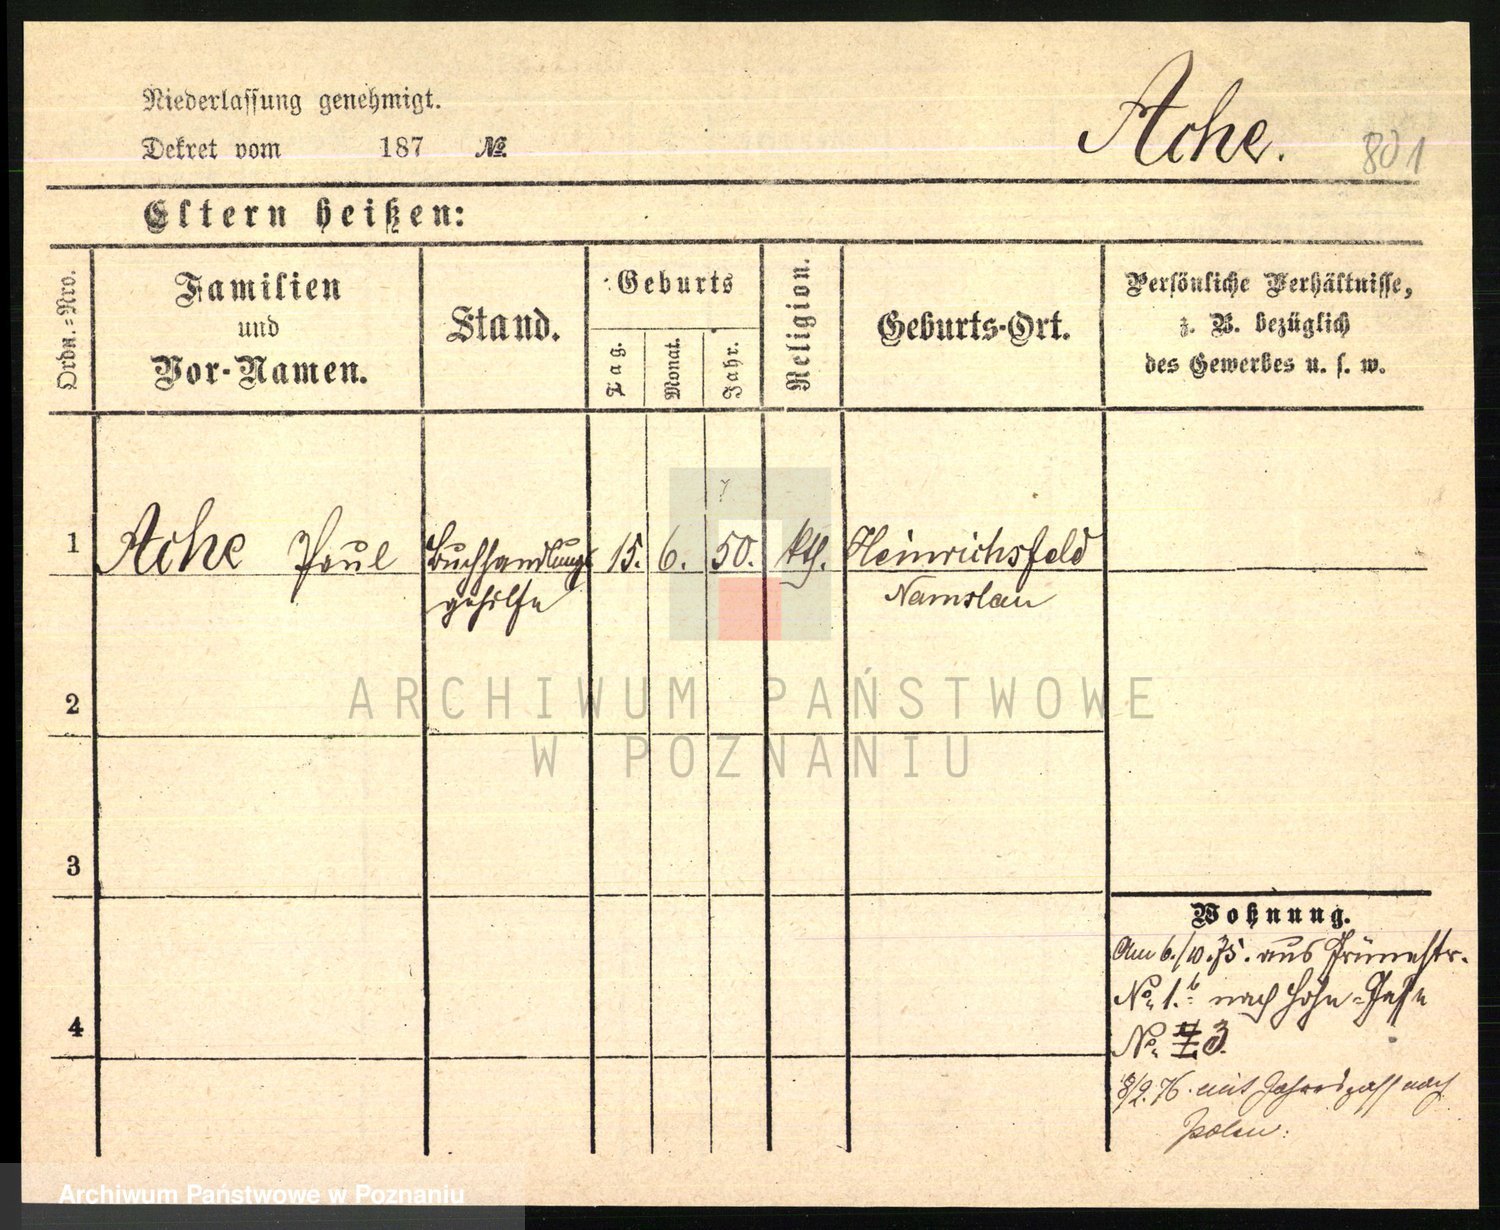 Niederlassung genehmigt.
Dekret vom 187 №
Ache. 801
Eltern heißen:
Ordn.=Nro.
Familien
und
Vor-Namen.
Stand.
Geburts
Tag.
Monat.
Jahr.
Religion.
Geburts-Ort.
Persönliche Verhältnisse,
z. B. bezüglich
des Gewerbes u. s. w.
1 Ache Paul Buchhandlungs 15. 6. 50. kth. Heinrichsfeld
gehilfe Namslau
2
ARCHIWUM PAŃSTWOWE
W POZNANIU
3
Wohnung.
Am 6./10.75. aus
No. 1.b nach Hohe-Gasse
4
No. 3
8/2.76. mit Jahrespass nach
Polen.
Archiwum Państwowe w Poznaniu